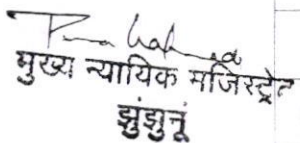 मुख्य न्यायिक मजिस्ट्रेट
झुंझुनूं